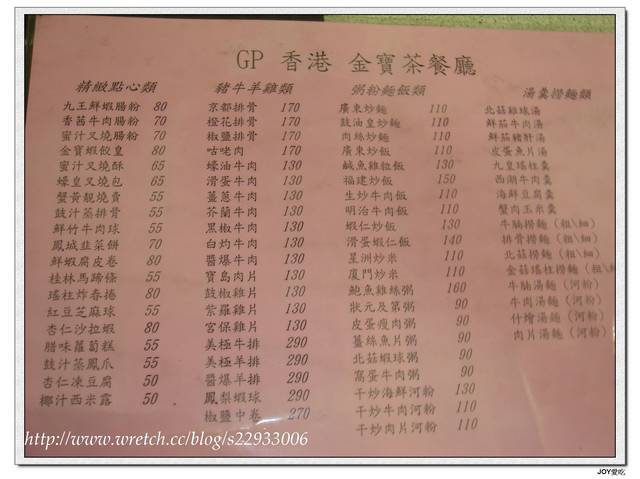 GP 香港 金寶茶餐廳
精緻點心類
九王鮮蝦腸粉 80
香茜牛肉腸粉 70
蜜汁叉燒腸粉 70
金寶蝦餃皇 80
蜜汁叉燒酥 65
蠔皇叉燒包 65
蟹黃靚燒賣 55
豉汁蒸排骨 55
鮮竹牛肉球 55
鳳城韭菜餅 70
鮮蝦腐皮卷 80
桂林馬蹄條 55
瑤柱炸春捲 80
紅豆芝麻球 55
杏仁沙拉蝦 80
腊味蘿蔔糕 55
豉汁蒸鳳爪 55
杏仁凍豆腐 50
椰汁西米露 50
豬牛羊雞類
京都排骨 170
橙花排骨 170
椒鹽排骨 170
咕咾肉 170
蠔油牛肉 130
滑蛋牛肉 130
薑蔥牛肉 130
芥蘭牛肉 130
黑椒牛肉 130
白灼牛肉 130
醬爆牛肉 130
寶島肉片 130
豉椒雞片 130
紫蘿雞片 130
宮保雞片 130
美極牛排 290
美極羊排 290
醬爆羊排 290
鳳梨蝦球 290
椒鹽中卷 270
粥粉麵飯類
廣東炒麵 110
豉油皇炒麵 110
肉絲炒麵 110
廣東炒飯 110
鹹魚雞粒飯 130
福建炒飯 150
生炒牛肉飯 110
明治牛肉飯 110
蝦仁炒飯 130
滑蛋蝦仁飯 140
星洲炒米 110
廈門炒米 110
鮑魚雞絲粥 160
狀元及第粥 90
皮蛋瘦肉粥 90
薑絲魚片粥 90
北菇蝦球粥 90
窩蛋牛肉粥 90
干炒海鮮河粉 130
干炒牛肉河粉 110
干炒肉片河粉 110
湯羹撈麵類
北菇雞球湯
鮮茄牛肉湯
鮮茄豬肝湯
皮蛋魚片湯
九皇瑤柱羹
西湖牛肉羹
海鮮豆腐羹
蟹肉玉米羹
牛腩撈麵 (粗\細)
排骨撈麵 (粗\細)
北菇撈麵 (粗\細)
金菇瑤柱撈麵 (粗\細
牛腩湯麵 (河粉)
牛肉湯麵 (河粉)
什燴湯麵 (河粉)
肉片湯麵 (河粉)
http://www.wretch.cc/blog/s22933006
JOY愛吃